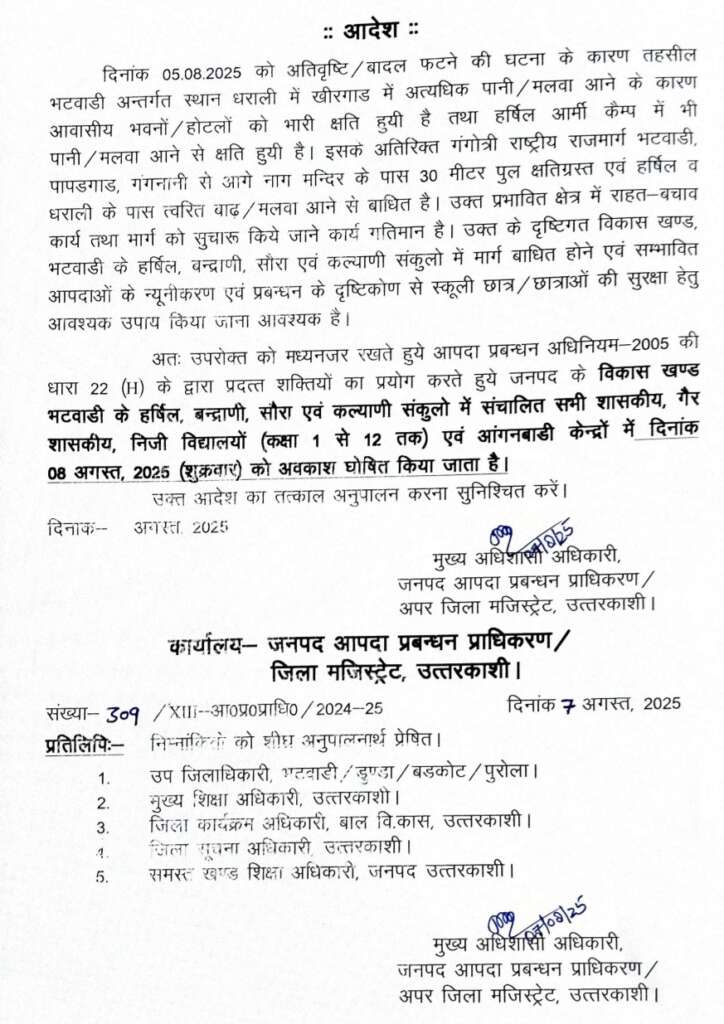 :: आदेश ::
दिनांक 05.08.2025 को अतिवृष्टि/बादल फटने की घटना के कारण तहसील
भटवाडी अन्तर्गत स्थान धराली में खीरगाड में अत्यधिक पानी/मलवा आने के कारण
आवासीय भवनों/होटलों को भारी क्षति हुयी है तथा हर्षिल आर्मी कैम्प में भी
पानी/मलवा आने से क्षति हुयी है। इसके अतिरिक्त गंगोत्री राष्ट्रीय राजमार्ग भटवाडी,
पापडगाड, गंगनानी से आगे नाग मन्दिर के पास 30 मीटर पुल क्षतिग्रस्त एवं हर्षिल व
धराली के पास त्वरित बाढ/मलवा आने से बाधित है। उक्त प्रभावित क्षेत्र में राहत–बचाव
कार्य तथा मार्ग को सुचारू किये जाने कार्य गतिमान है। उक्त के दृष्टिगत विकास खण्ड,
भटवाडी के हर्षिल, बन्द्राणी, सौरा एवं कल्याणी संकुलो में मार्ग बाधित होने एवं सम्भावित
आपदाओं के न्यूनीकरण एवं प्रबन्धन के दृष्टिकोण से स्कूली छात्र/छात्राओं की सुरक्षा हेतु
आवश्यक उपाय किया जाना आवश्यक है।
अतः उपरोक्त को मध्यनजर रखते हुये आपदा प्रबन्धन अधिनियम–2005 की
धारा 22 (H) के द्वारा प्रदत्त शक्तियों का प्रयोग करते हुये जनपद के विकास खण्ड
भटवाडी के हर्षिल, बन्द्राणी, सौरा एवं कल्याणी संकुलो में संचालित सभी शासकीय, गैर
शासकीय, निजी विद्यालयों (कक्षा 1 से 12 तक) एवं आंगनबाडी केन्द्रों में दिनांक
08 अगस्त, 2025 (शुक्रवार) को अवकाश घोषित किया जाता है।
उक्त आदेश का तत्काल अनुपालन करना सुनिश्चित करें।
दिनाक-- अगस्त, 2025
07/08/25
मुख्य अधिशासी अधिकारी,
जनपद आपदा प्रबन्धन प्राधिकरण/
अपर जिला मजिस्ट्रेट, उत्तरकाशी।
कार्यालय– जनपद आपदा प्रबन्धन प्राधिकरण/
जिला मजिस्ट्रेट, उत्तरकाशी।
संख्या– 309 /XIII--आ0प्र0प्राधि0/2024-25 दिनांक 7 अगस्त, 2025
प्रतिलिपिः– निम्नांकितो को शीघ्र अनुपालनार्थ प्रेषित।
1. उप जिलाधिकारी, भटवाडी/डुण्डा/बडकोट/पुरोला।
2. मुख्य शिक्षा अधिकारी, उत्तरकाशी।
3. जिला कार्यक्रम अधिकारी, बाल वि.कास, उत्तरकाशी।
4. जिला सूचना अधिकारी, उत्तरकाशी।
5. समस्त खण्ड शिक्षा अधिकारी, जनपद उत्तरकाशी।
07/08/25
मुख्य अधिशासी अधिकारी,
जनपद आपदा प्रबन्धन प्राधिकरण/
अपर जिला मजिस्ट्रेट, उत्तरकाशी।